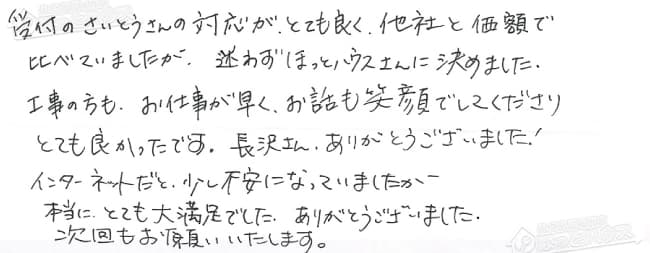 受付のさいとうさんの対応が、とても良く、他社と価額で
比べていましたが、迷わずほっとハウスさんに決めました.
工事の方も、お仕事が早く、お話も笑顔でしてくださり
とても良かったです。長沢さん、ありがとうございました!
インターネットだと、少し不安になっていましたがー
本当に、とても大満足でした、ありがとうございました.
次回もお願いいたします。